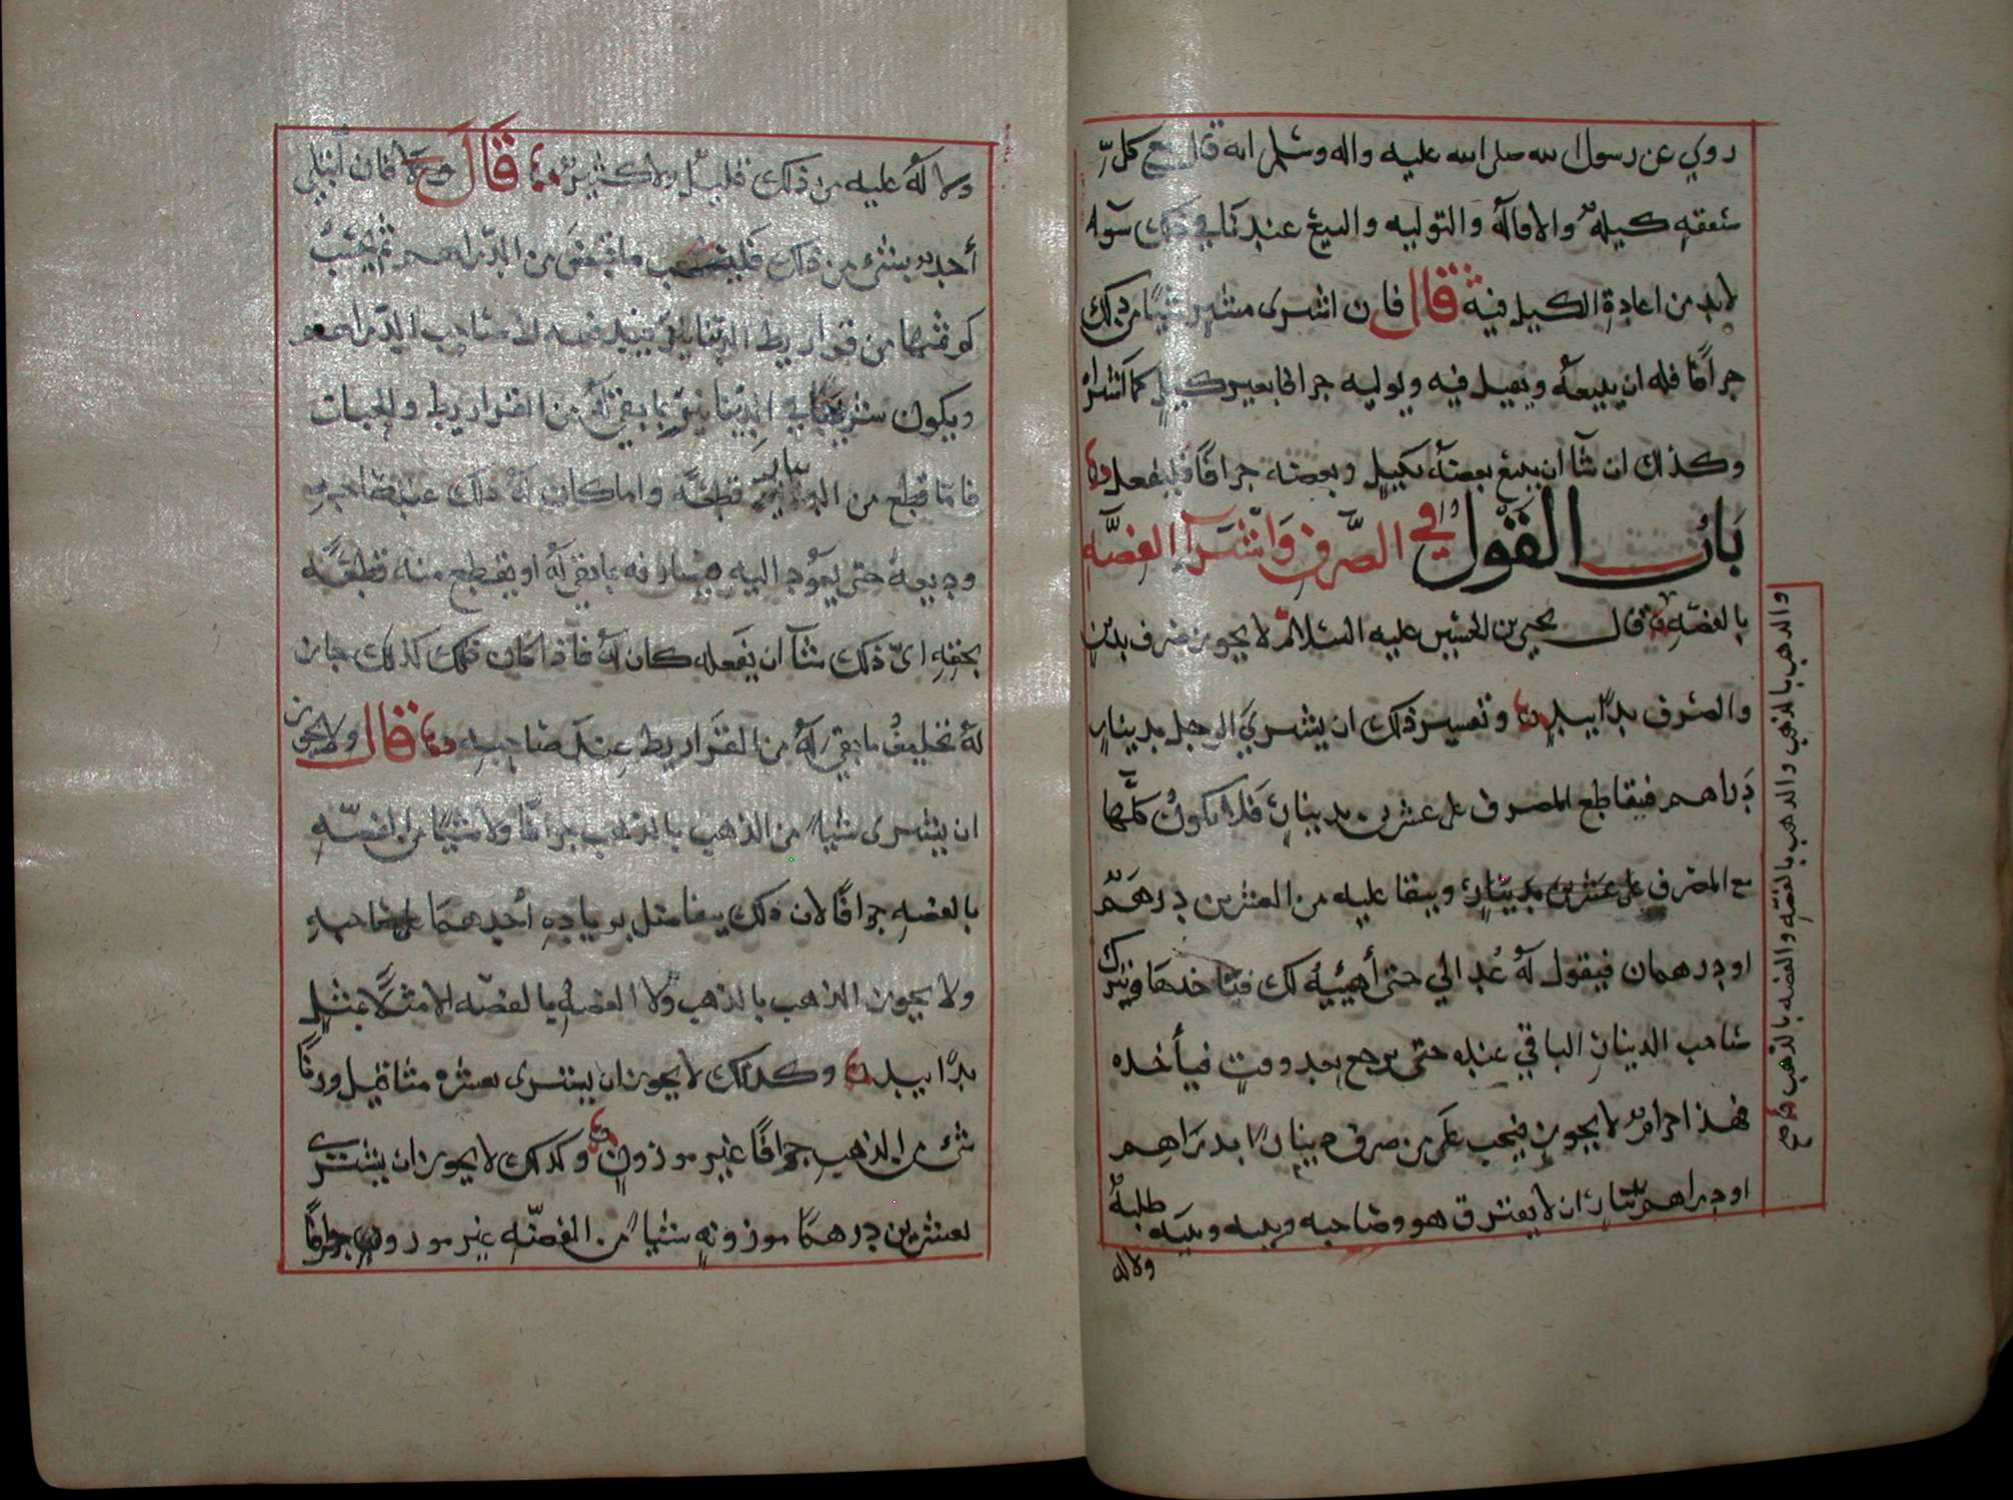 روي عن رسول الله صلى الله عليه واله وسلم انه قال بيع كل
صفقه كيله والاقاله والتوليه والبيع عندنا في ذلك سوآء
لابد من اعادة الكيل فيه قال فان اشترى مشتر شيئًا من ذلك
جزافًا فله ان يبيعه ويقيل فيه ويوليه جزافا بغير كيل كما اشتراه
وكذلك ان شآ ان يبيع بعضه بكيل وبعضه جزافًا فليفعل
باب القول في الصرف واشترآ الفضه
بالفضه قال يحيى بن الحسين عليه السلام لا يجوز صرف بدين
والصرف يدًا بيد وتفسير ذلك ان يشتري الرجل بدينار
دراهم فيقاطع المصرف على عشرين بدينار فلا يكون كلها
مع المصرف على عشرين بدينار ويبقا عليه من العشرين درهم
او درهمان فيقول له عد الي حتى أهيئه لك فتاخدها ويترك
صاحب الدينار الباقي عنده حتى يرجع بعد وقت فيأخذه
فهذا حرام لا يجوز فيجب على من صرف دينارًا بدراهم
او دراهم بدينار ان لا يفترق هو وصاحبه وبينه وبينه طلبة
ولا له
والذهب بالذهب والذهب بالفضه والفضه بالذهب صح
ولا له عليه من ذلك قليل ولا كثير قال فان ابتلي
أحد بشيء من ذلك فليحسب ما قبض من الدراهم ثم يحسب
كم ثمنها من قراريط الدينار فيدفعه لاصاحب الدراهم
ويكون شريكا في الدينار بما بقي له من القراريط والحبات
فامّا قطع من الدينار قطعه واما كان له ذلك عند صاحبه
وديعه حتى يعود اليه فيسارفه بما بقي له او يقطع منه قطعه
بحقه اي ذلك شآ ان يفعله كان له فاذا كان ذلك كذلك جاز
له تخليف ما بقي له من القراريط عند صاحبه قال ولا يجوز
ان يشترى شياء من الذهب بالذهب جزافًا ولا شيئًا من الفضه
بالفضه جزافًا لان ذلك يتفاضل بزيادة أحدهما على صاحبه
ولا يجوز الذهب بالذهب ولا الفضه بالفضه الا مثلًا بمثل
يدًا بيد وكذلك لا يجوز ان يشترى بعشره مثاقيل وزنًا
شئ من الذهب جزافًا غير موزون وكذلك لا يجوز ان يشترى
بعشرين درهمًا موزونه شياء من الفضه غير موزون جزافًا